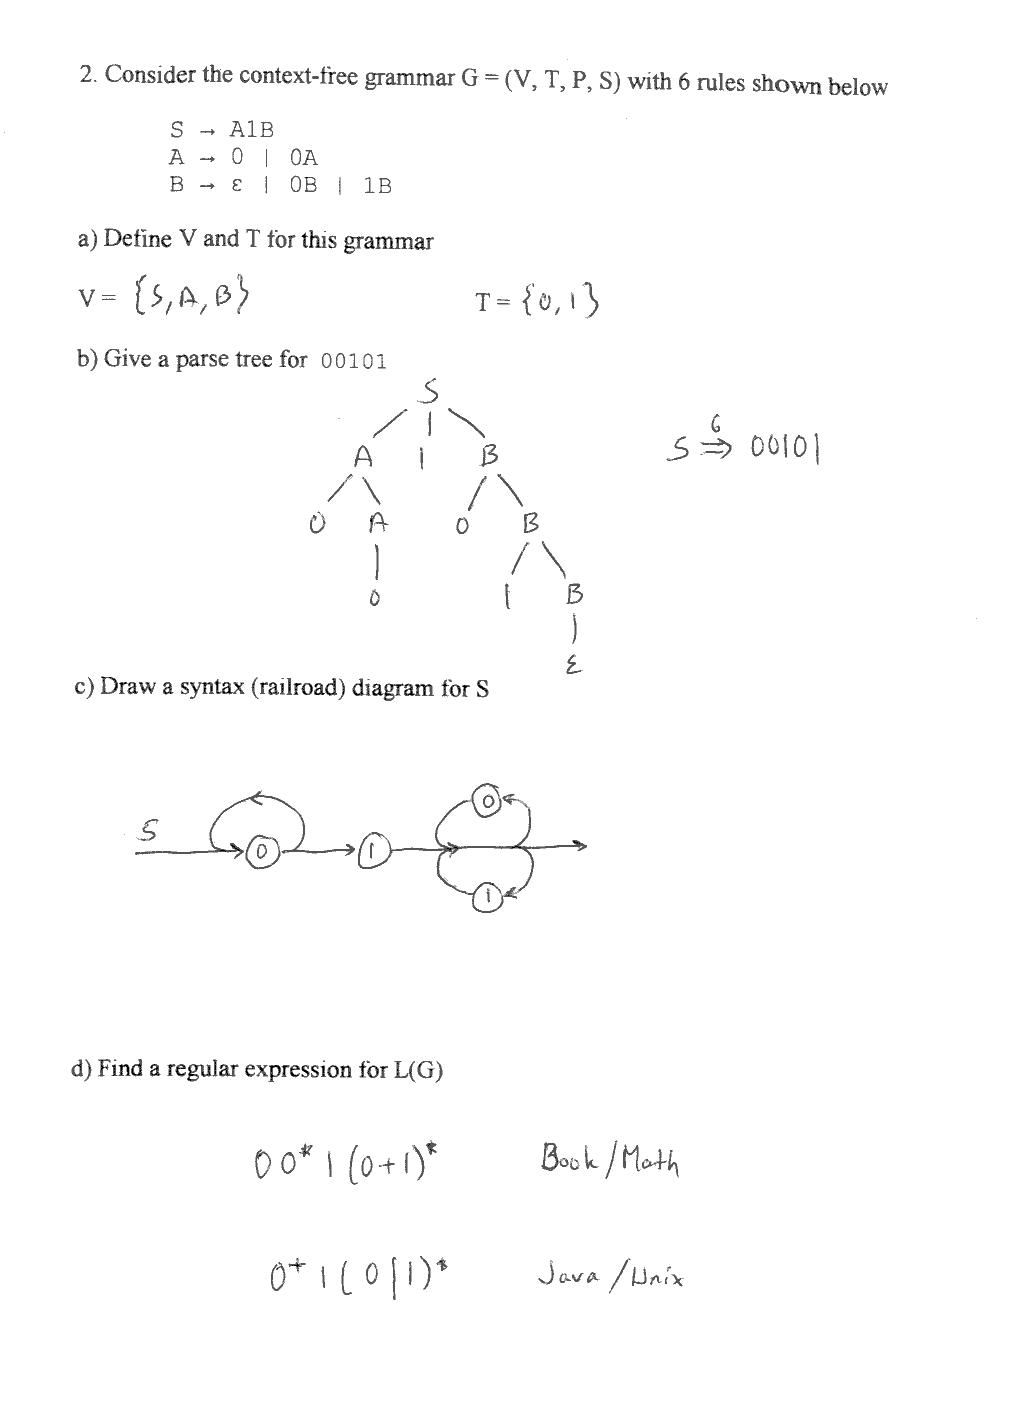 2. Consider the context-free grammar G = (V, T, P, S) with 6 rules shown below
S → A1B
A → 0 | 0A
B → ε | 0B | 1B
a) Define V and T for this grammar
V = {S, A, B} T = {0, 1}
b) Give a parse tree for 00101
S
A 1 B
S ⇒ 00101
G
0 A 0 B
0 1 B
ε
c) Draw a syntax (railroad) diagram for S
0
S 0 1
1
d) Find a regular expression for L(G)
00*1(0+1)* Book/Math
0+1(0|1)* Java/Unix